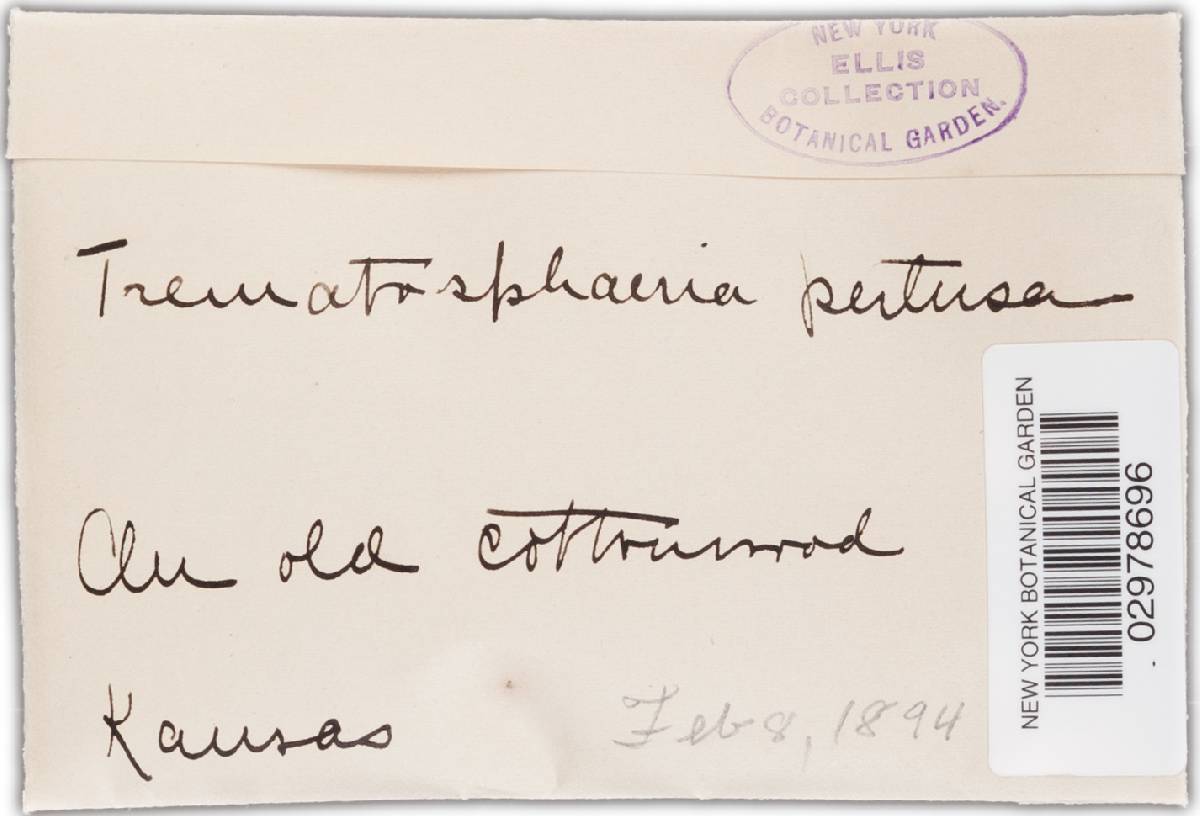 NEW YORK
ELLIS
COLLECTION
BOTANICAL GARDEN.
Trematosphaeria pertusa
On old cottonwood
Kansas
Feb 8, 1894
NEW YORK BOTANICAL GARDEN
02978696